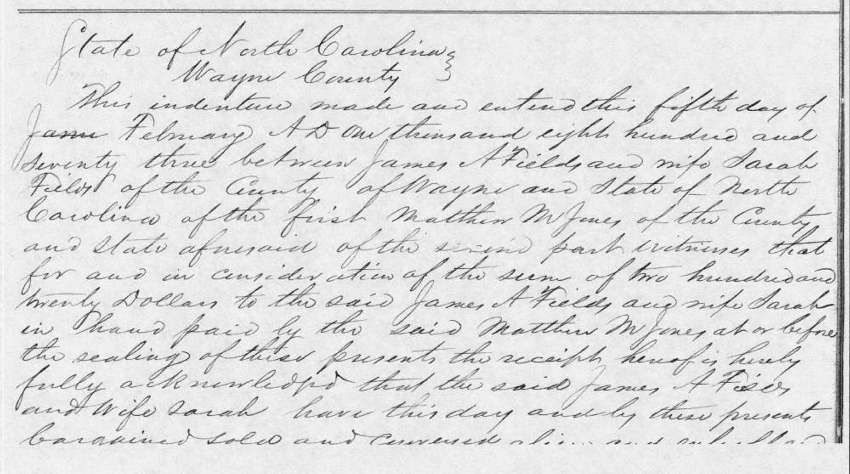 State of North Carolina
Wayne County
This indenture made and entend this fifth day of
Janu February A D One thousand eight hundred and
seventy three between James A Fields and wife Sarah
Fields of the County of Wayne and State of North
Carolina of the first Matthew M Jones of the County
and state aforesaid of the second part witnesses that
for and in consideration of the sum of two hundred and
twenty Dollars to the said James A Fields and wife Sarah
in hand paid by the said Matthew M Jones at or before
the sealing of these presents the receipts hereof is hereby
fully acknowledged that the said James A Fields
and Wife Sarah have this day and by these presents
bargained sold and conveyed